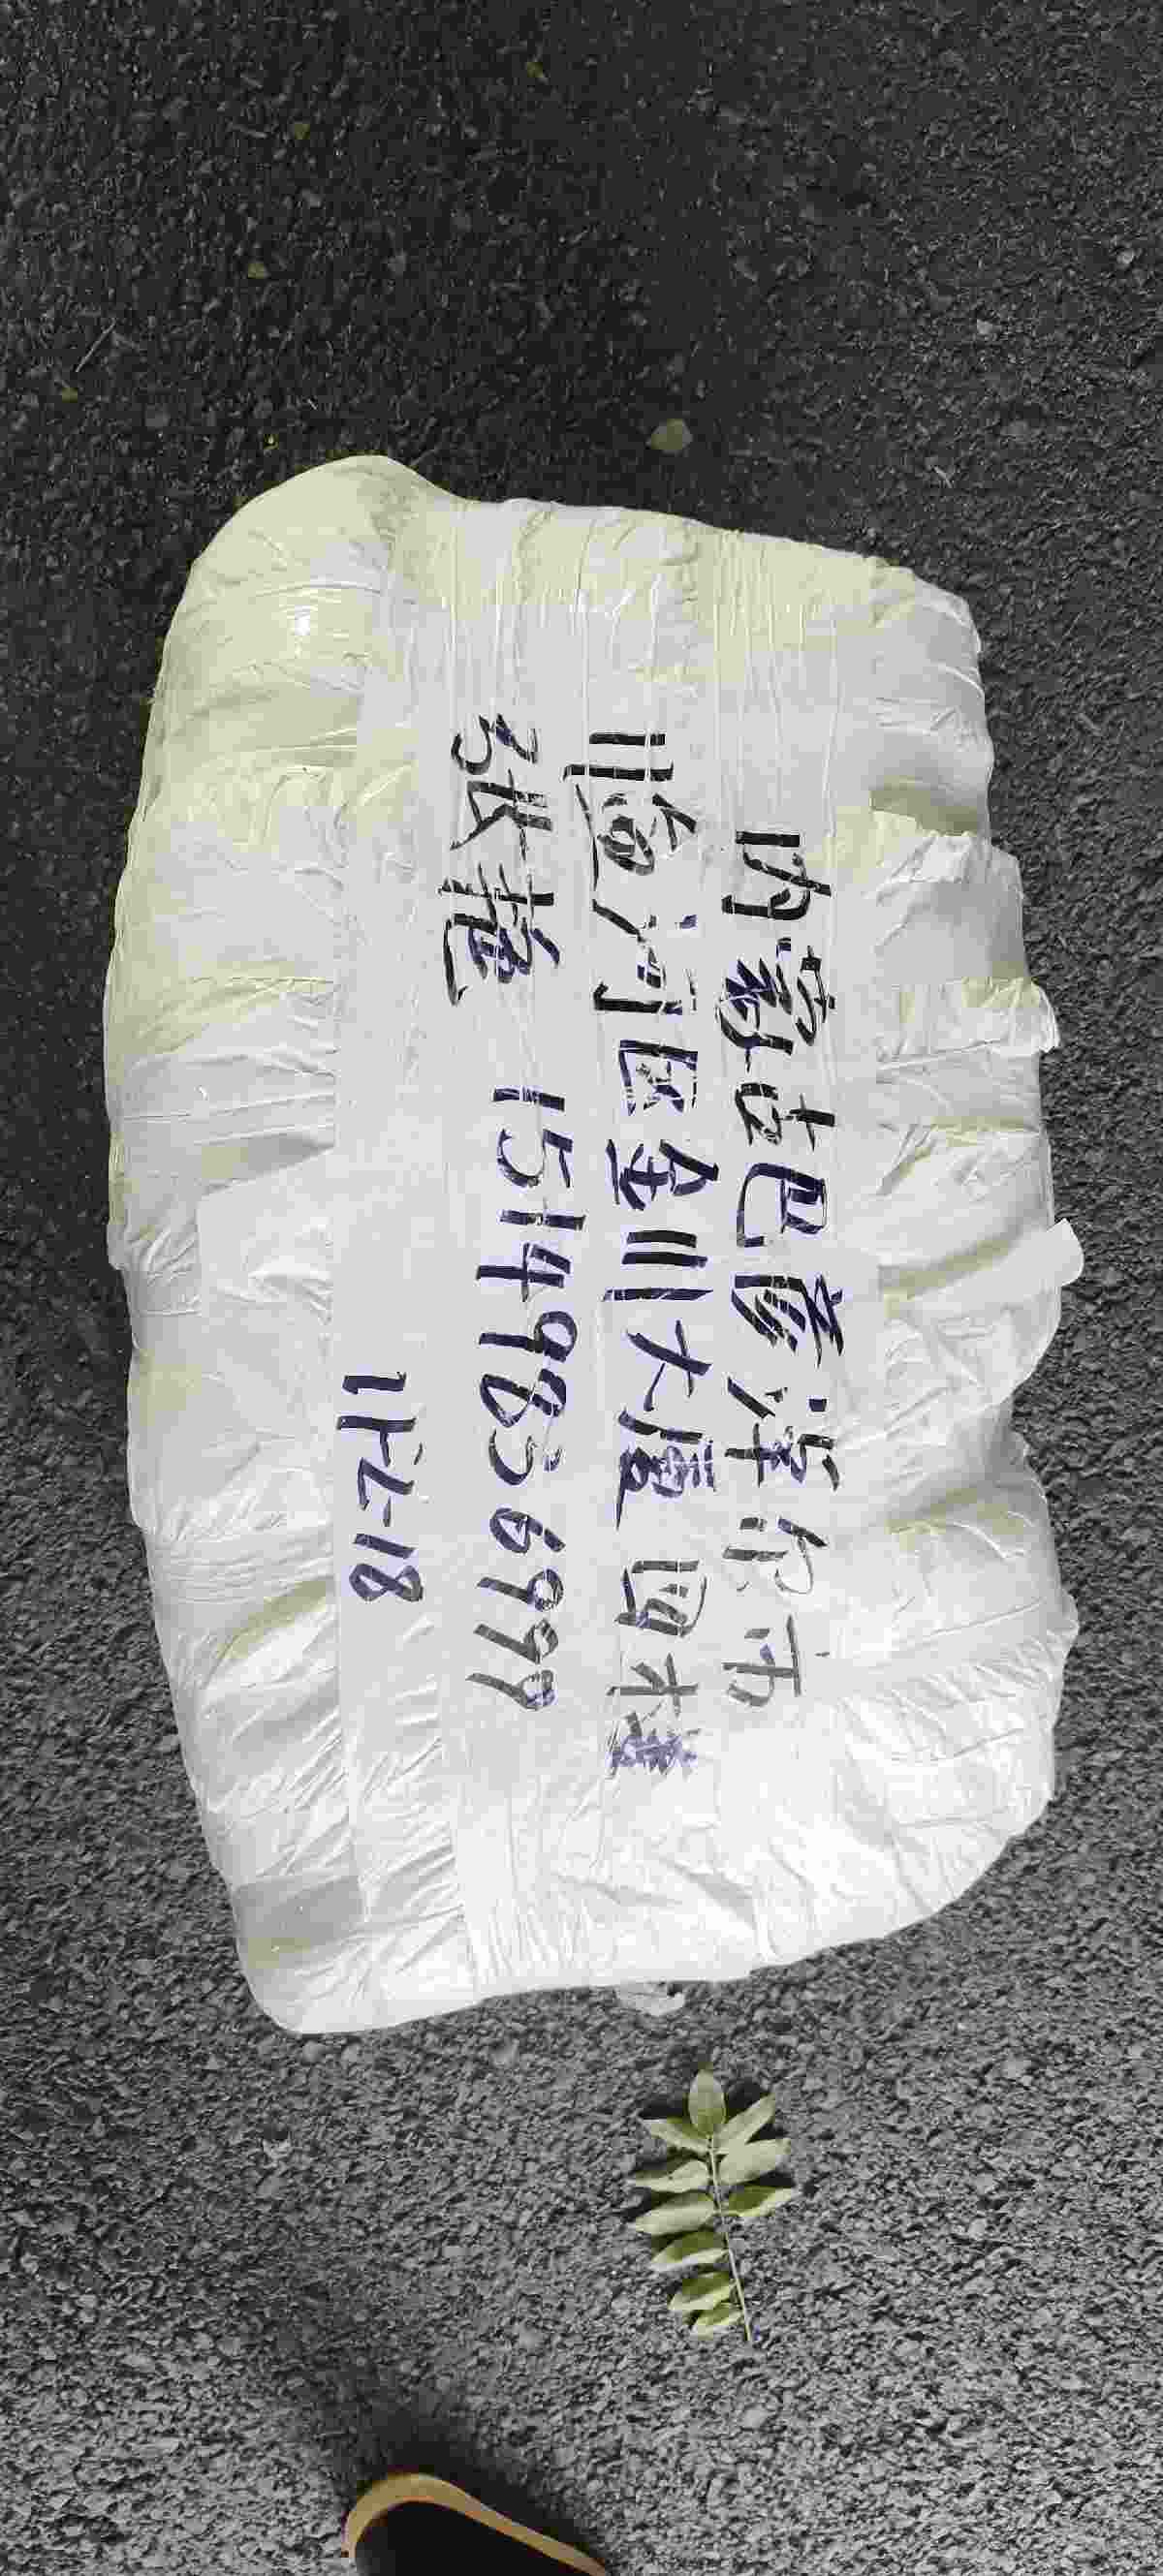 内蒙古巴彦淖尔市
临河区金川大厦四楼
张艳 15149836998
11-7-18